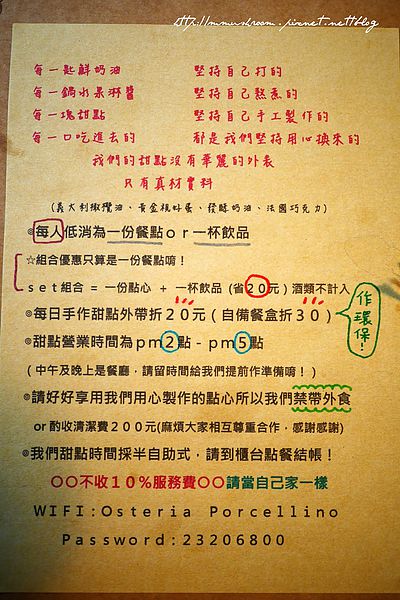 http://mmushroom.pixnet.net/blog
每一匙鮮奶油 堅持自己打的
每一鍋水果淋醬 堅持自己熬煮的
每一塊甜點 堅持自己手工製作的
每一口吃進去的 都是我們堅持用心換來的
我們的甜點沒有華麗的外表
只有真材實料
(義大利橄欖油、黃金雞好蛋、發酵奶油、法國巧克力)
◎每人低消為一份餐點or一杯飲品
☆組合優惠只算是一份餐點唷!
set組合 = 一份點心 + 一杯飲品 (省20元) 酒類不計入
◎每日手作甜點外帶折20元(自備餐盒折30)
作環保!
◎甜點營業時間為pm2點-pm5點
(中午及晚上是餐廳,請留時間給我們提前作準備唷!)
◎請好好享用我們用心製作的點心所以我們禁帶外食
or 酌收清潔費200元(麻煩大家相互尊重合作,感謝感謝)
◎我們甜點時間採半自助式,請到櫃台點餐結帳!
○○不收10%服務費○○請當自己家一樣
WIFI:Osteria Porcellino
Password:23206800